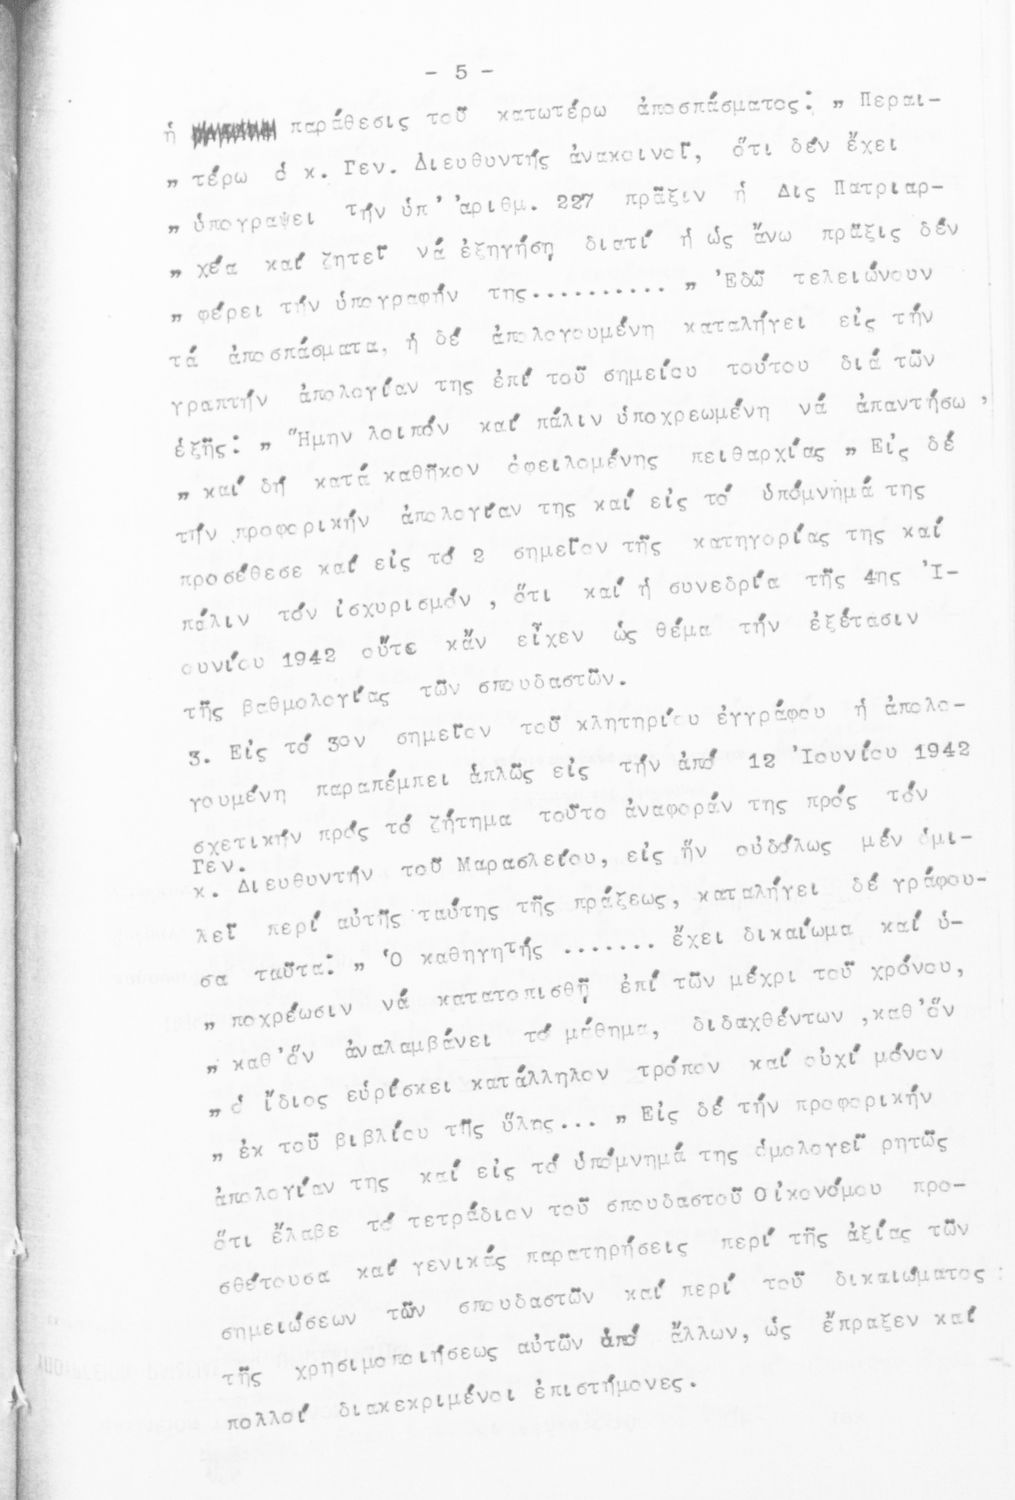 - 5 -
ἡ παράθεσις τοῦ κατωτέρω ἀποσπάσματος: „ Περαι-
„ τέρω ὁ κ. Γεν. Διευθυντής ἀνακοινοῖ, ὅτι δέν ἔχει
„ ὑπογραψει τήν ὑπ' ἀριθμ. 227 πρᾶξιν ἡ Δις Πατριαρ-
„ χέα καί ζητεῖ νά ἐξηγήση διατί ἡ ὡς ἄνω πρᾶξις δέν
„ φέρει τήν ὑπογραφήν της.......... „ 'Εδῶ τελειώνουν
τά ἀποσπάσματα, ἡ δέ ἀπολογουμένη καταλήγει εἰς τήν
γραπτήν ἀπολογίαν της ἐπί τοῦ σημείου τούτου διά τῶν
ἑξῆς: „ Ἤμην λοιπόν καί πάλιν ὑποχρεωμένη νά ἀπαντήσω,
„ καί δή κατά καθῆκον ὀφειλομένης πειθαρχίας „ Εἰς δέ
τήν προφορικήν ἀπολογίαν της καί εἰς τό ὑπόμνημά της
προσέθεσε καί εἰς τό 2 σημεῖον τῆς κατηγορίας της καί
πάλιν τόν ἰσχυρισμόν , ὅτι καί ἡ συνεδρία τῆς 4ης 'Ι-
ουνίου 1942 οὔτε κἄν εἶχεν ὡς θέμα τήν ἐξέτασιν
τῆς βαθμολογίας τῶν σπουδαστῶν.
3. Εἰς τό 3ον σημεῖον τοῦ κλητηρίου ἐγγράφου ἡ ἀπολο-
γουμένη παραπέμπει ἁπλῶς εἰς τήν ἀπό 12 'Ιουνίου 1942
σχετικήν πρός τό ζήτημα τοῦτο ἀναφοράν της πρός τόν
Γεν.
κ. Διευθυντήν τοῦ Μαρασλείου, εἰς ἥν οὐδόλως μέν ὁμι-
λεῖ περί αὐτῆς ταύτης τῆς πράξεως, καταλήγει δέ γράφου-
σα ταῦτα: „ Ὁ καθηγητής ....... ἔχει δικαίωμα καί ὑ-
„ ποχρέωσιν νά κατατοπισθῇ ἐπί τῶν μέχρι τοῦ χρόνου,
„ καθ'ὅν ἀναλαμβάνει τό μάθημα, διδαχθέντων ,καθ'ὅν
„ ὁ ἴδιος εὑρίσκει κατάλληλον τρόπον καί οὐχί μόνον
„ ἐκ τοῦ βιβλίου τῆς ὕλης... „ Εἰς δέ τήν προφορικήν
ἀπολογίαν της καί εἰς τό ὑπόμνημά της ὁμολογεῖ ρητῶς
ὅτι ἔλαβε τό τετράδιον τοῦ σπουδαστοῦ Οἰκονόμου προ-
σθέτουσα καί γενικάς παρατηρήσεις περί τῆς ἀξίας τῶν
σημειώσεων τῶν σπουδαστῶν καί περί τοῦ δικαιώματος
τῆς χρησιμοποιήσεως αὐτῶν ἀπό ἄλλων, ὡς ἔπραξεν καί
πολλοί διακεκριμένοι ἐπιστήμονες.